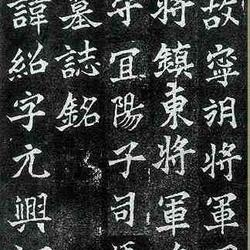 故寧朔將軍
將鎮東將軍
守宜陽子司
墓誌銘
諱紹字元興